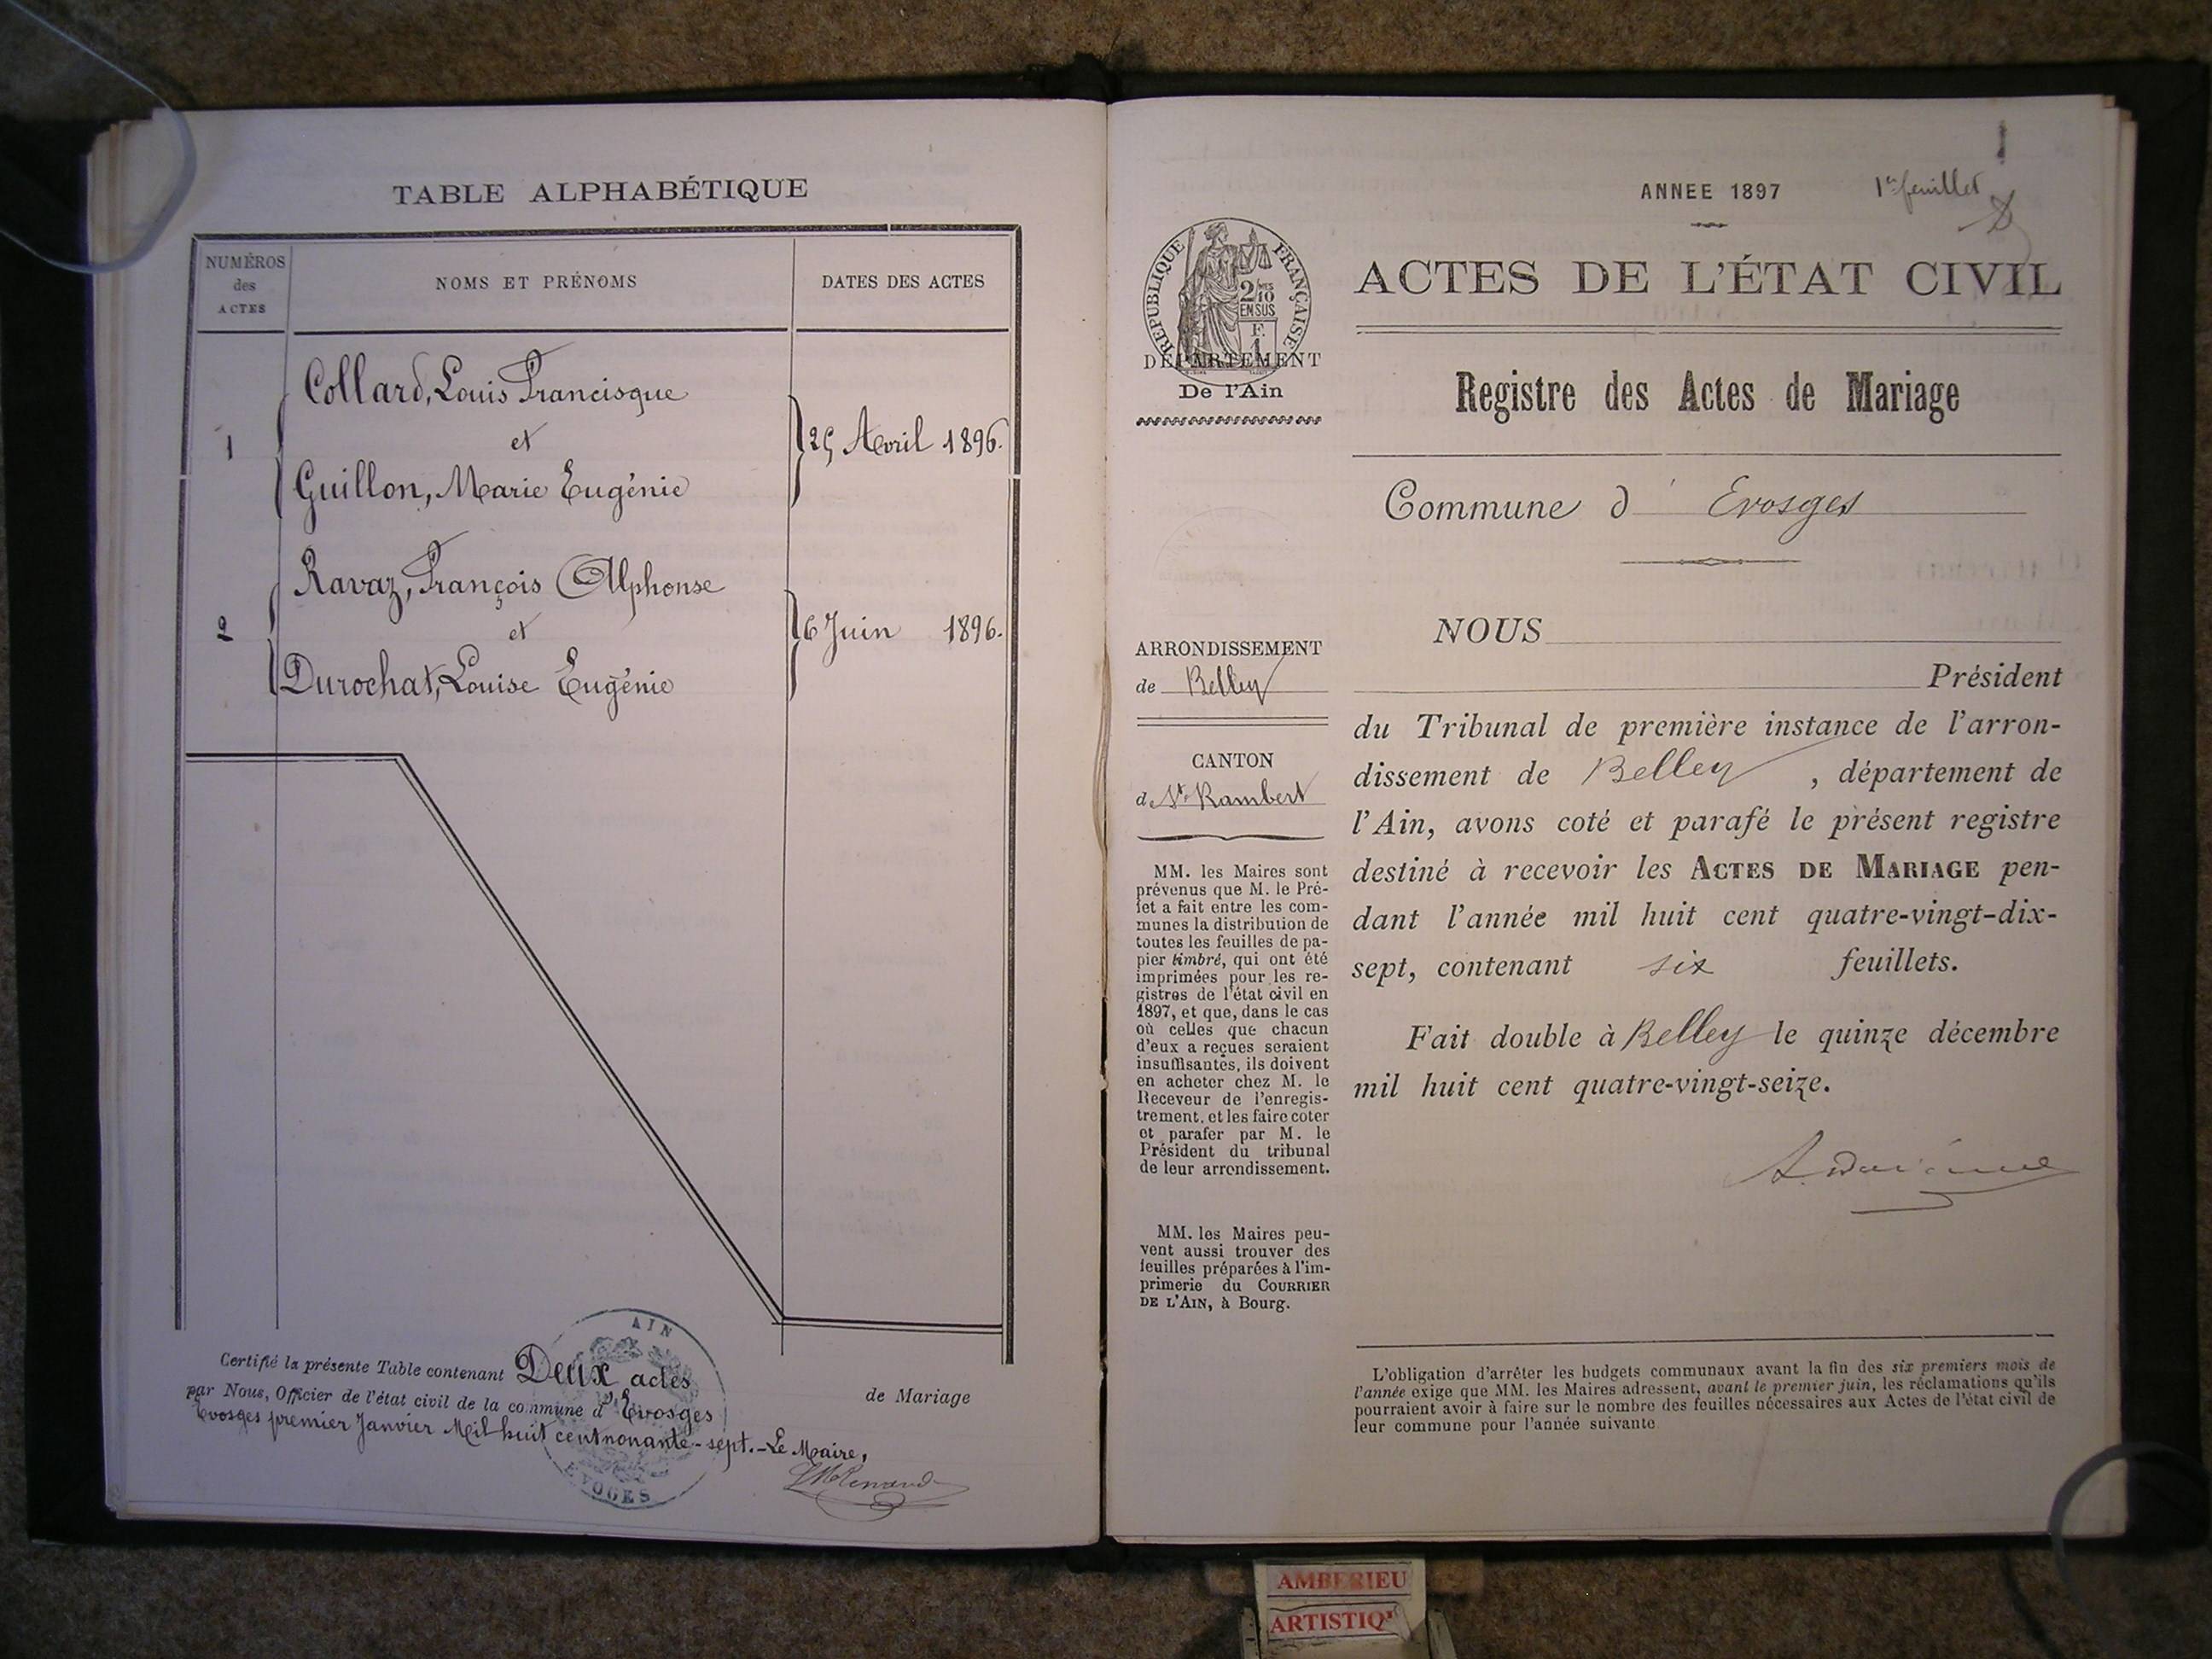 TABLE ALPHABÉTIQUE
NUMÉROS
des
ACTES
NOMS ET PRÉNOMS
DATES DES ACTES
Collard, Louis Francisque
1
et
25 Avril 1896.
Guillon, Marie Eugénie
Ravaz, François Alphonse
2
et
6 Juin 1896.
Durochat, Louise Eugénie
Certifié la présente Table contenant Deux actes de Mariage
par Nous, Officier de l'état civil de la commune d'Evosges
Evosges premier Janvier Mil huit cent nonante-sept. - Le Maire,
AIN
EVOGES
ANNEE 1897
1er feuillet
RÉPUBLIQUE FRANÇAISE
2/10
EN SUS
DÉPARTEMENT
De l'Ain
ACTES DE L'ÉTAT CIVIL
Registre des Actes de Mariage
Commune d'Evosges
ARRONDISSEMENT
de Belley
CANTON
de St. Rambert
MM. les Maires sont
prévenus que M. le Pré-
fet a fait entre les com-
munes la distribution de
toutes les feuilles de pa-
pier timbré, qui ont été
imprimées pour les re-
gistres de l'état civil en
1897, et que, dans le cas
où celles que chacun
d'eux a reçues seraient
insuffisantes, ils doivent
en acheter chez M. le
Receveur de l'enregis-
trement, et les faire coter
et parafer par M. le
Président du tribunal
de leur arrondissement.
MM. les Maires peu-
vent aussi trouver des
feuilles préparées à l'im-
primerie du COURRIER
DE L'AIN, à Bourg.
NOUS
Président
du Tribunal de première instance de l'arron-
dissement de Belley, département de
l'Ain, avons coté et parafé le présent registre
destiné à recevoir les ACTES DE MARIAGE pen-
dant l'année mil huit cent quatre-vingt-dix-
sept, contenant six feuillets.
Fait double à Belley le quinze décembre
mil huit cent quatre-vingt-seize.
L'obligation d'arrêter les budgets communaux avant la fin des six premiers mois de
l'année exige que MM. les Maires adressent, avant le premier juin, les réclamations qu'ils
pourraient avoir à faire sur le nombre des feuilles nécessaires aux Actes de l'état civil de
leur commune pour l'année suivante.
AMBERIEU
ARTISTIQ